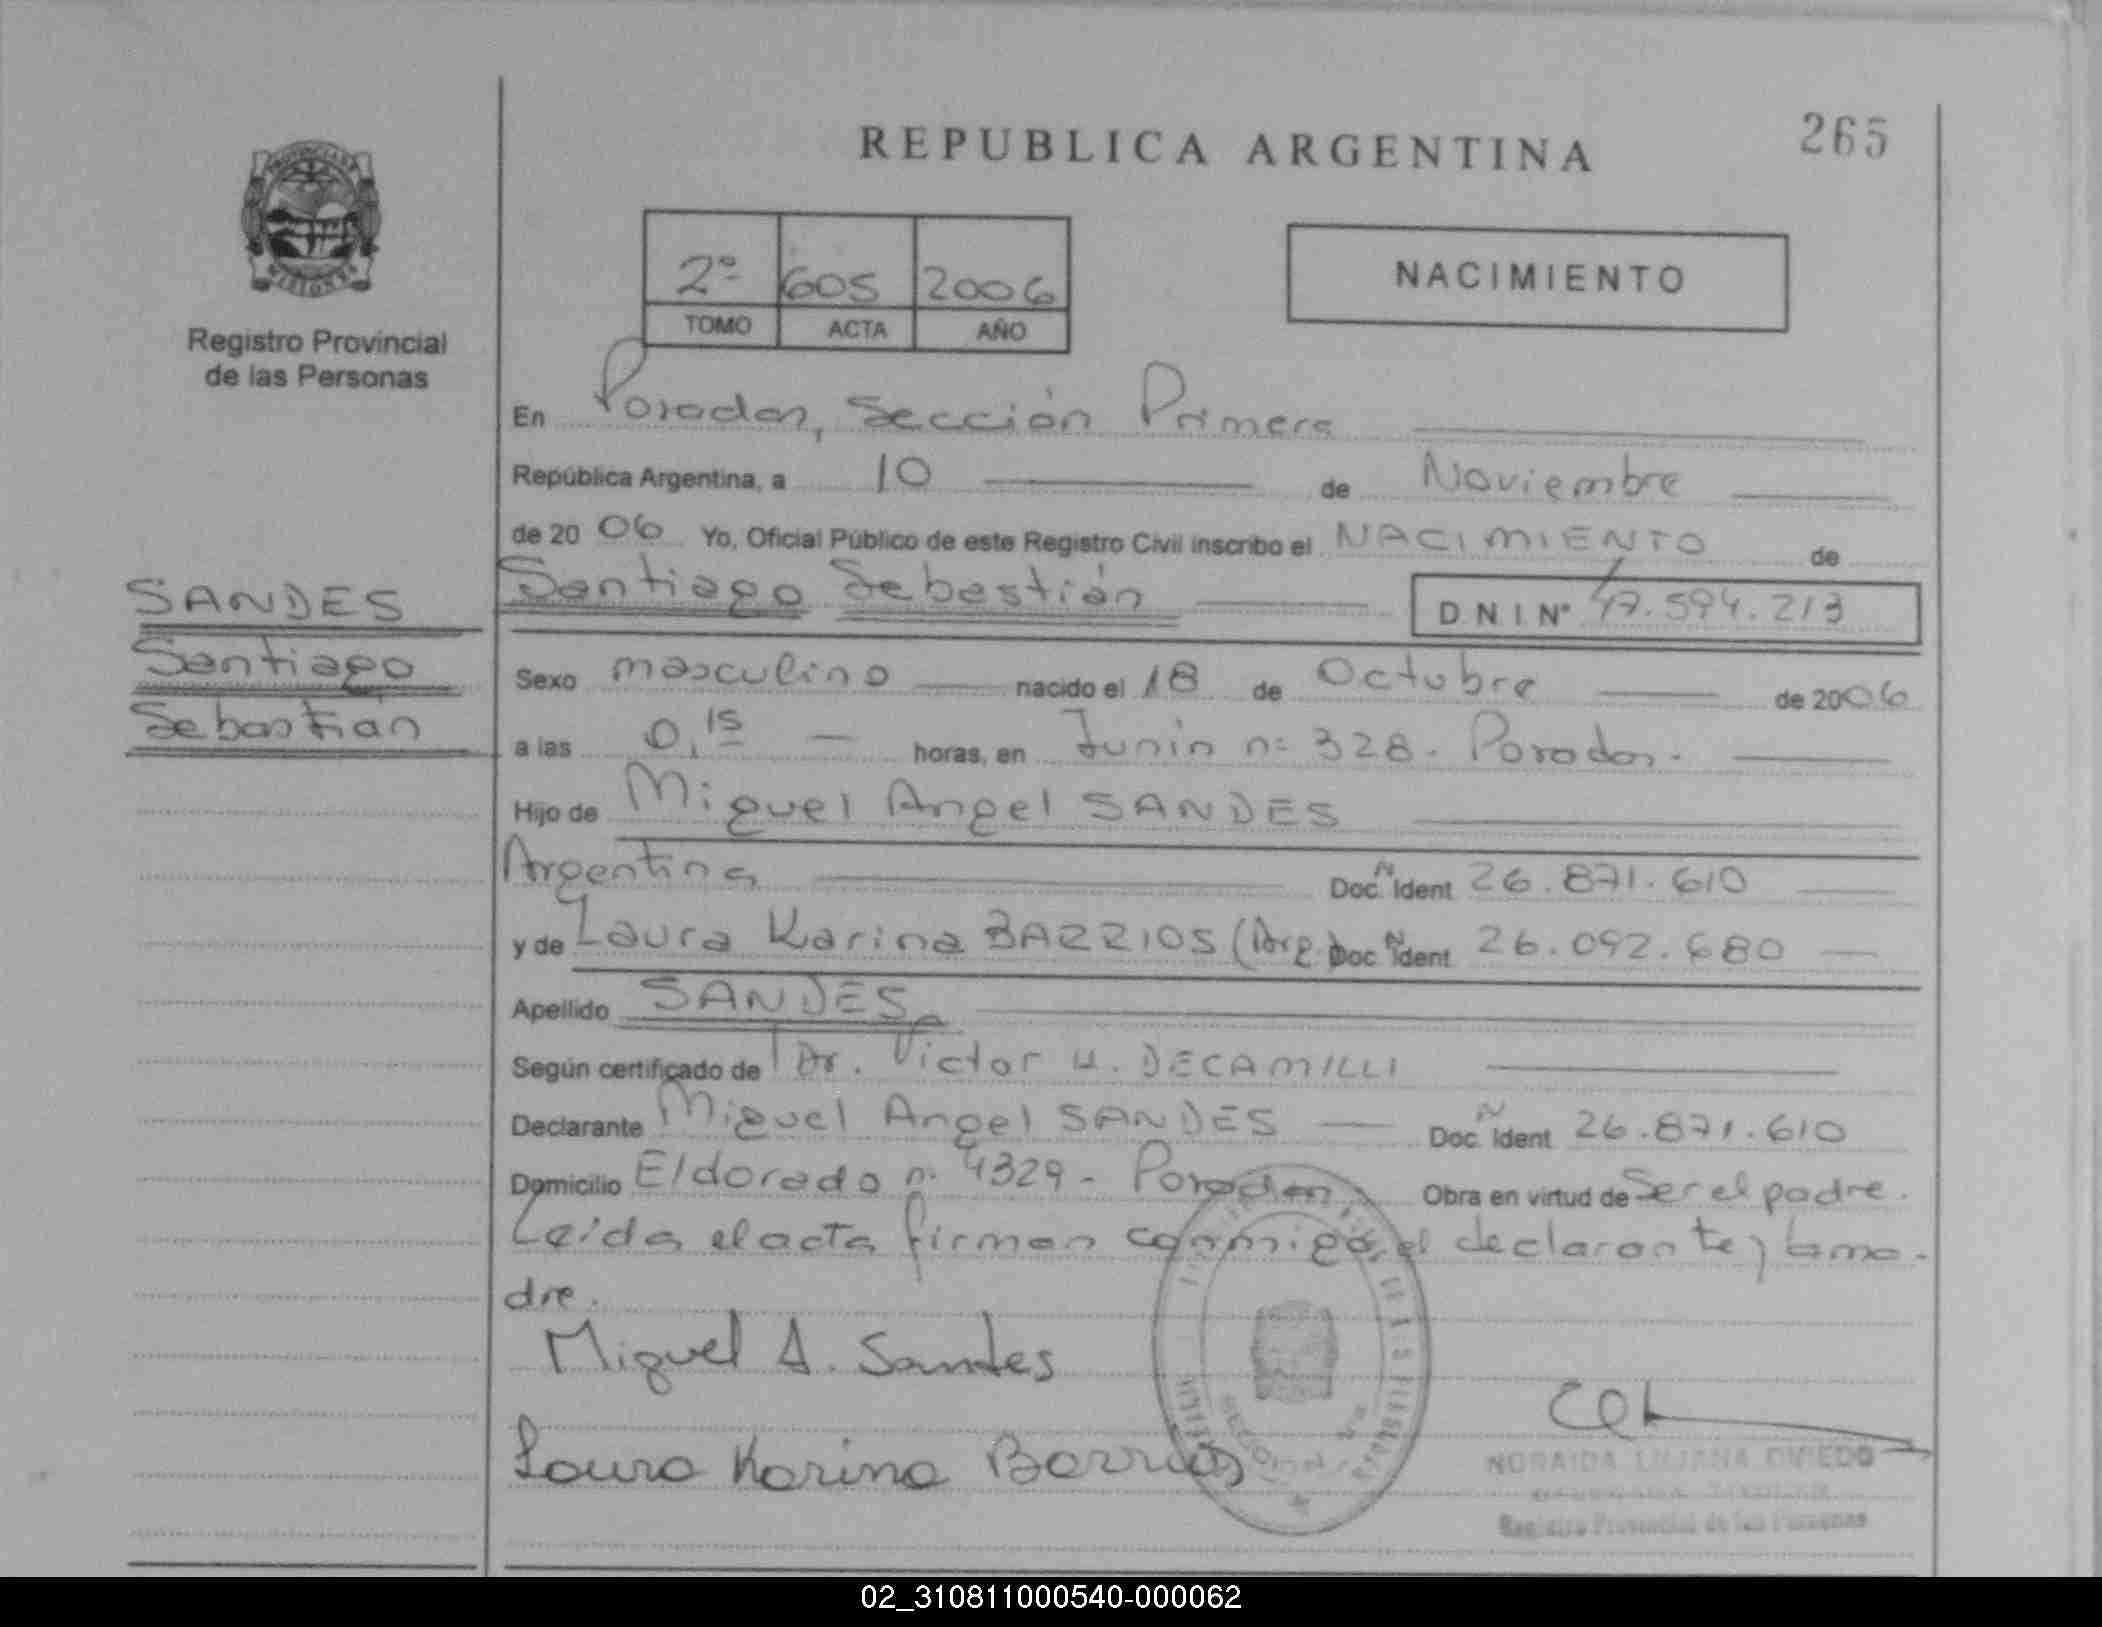 REPUBLICA ARGENTINA
265
2º 605 2006
TOMO ACTA AÑO
NACIMIENTO
PROVINCIA DE
MISIONES
Registro Provincial
de las Personas
En Posadas, Sección Primera
República Argentina, a 10 de Noviembre
de 2006 Yo, Oficial Público de este Registro Civil inscribo el NACIMIENTO de
Santiago Sebastián D.N.I.Nº 47.594.213
SANDES
Santiago
Sebastián
Sexo masculino nacido el 18 de Octubre de 2006
a las 0,15 horas, en Junín n= 328 - Posadas.
Hijo de Miguel Angel SANDES
Argentina Doc. Ident 26.871.610
y de Laura Karina BARRIOS (Arg.) Doc. Ident 26.092.680
Apellido SANDES
Según certificado de Dr. Victor H. DECAMILLI
Declarante Miguel Angel SANDES Doc. Ident 26.871.610
Domicilio Eldorado n. 4329 - Posadas Obra en virtud de Ser el padre.
Leída el acta firman conmigo, el declarante y la ma-
dre.
Miguel A. Sandes
Laura Karina Barrios
NORAIDA LILIANA OVIEDO
Registro Provincial de las Personas
02_310811000540-000062